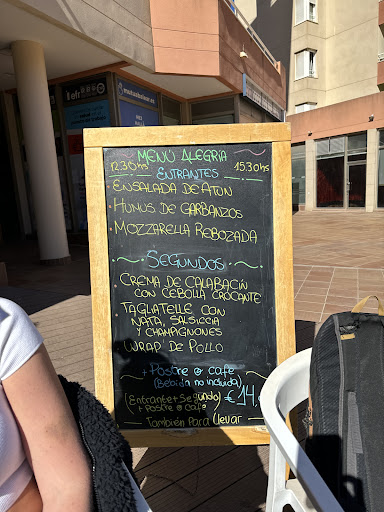 MENÚ ALEGRIA
12:30hs 15:30hs
ENTRANTES
· ENSALADA DE ATÚN
· HUMUS DE GARBANZOS
· MOZZARELLA REBOZADA
SEGUNDOS
· CREMA DE CALABACÍN
CON CEBOLLA CROCANTE
· TAGLIATELLE CON
NATA, SALSICCIA
Y CHAMPIGNONES
· WRAP DE POLLO
+ POSTRE O CAFE
(Bebida no incluida)
(Entrante + Segundo)
+ POSTRE O CAFE
€ 14
TAMBIÉN PARA LLEVAR